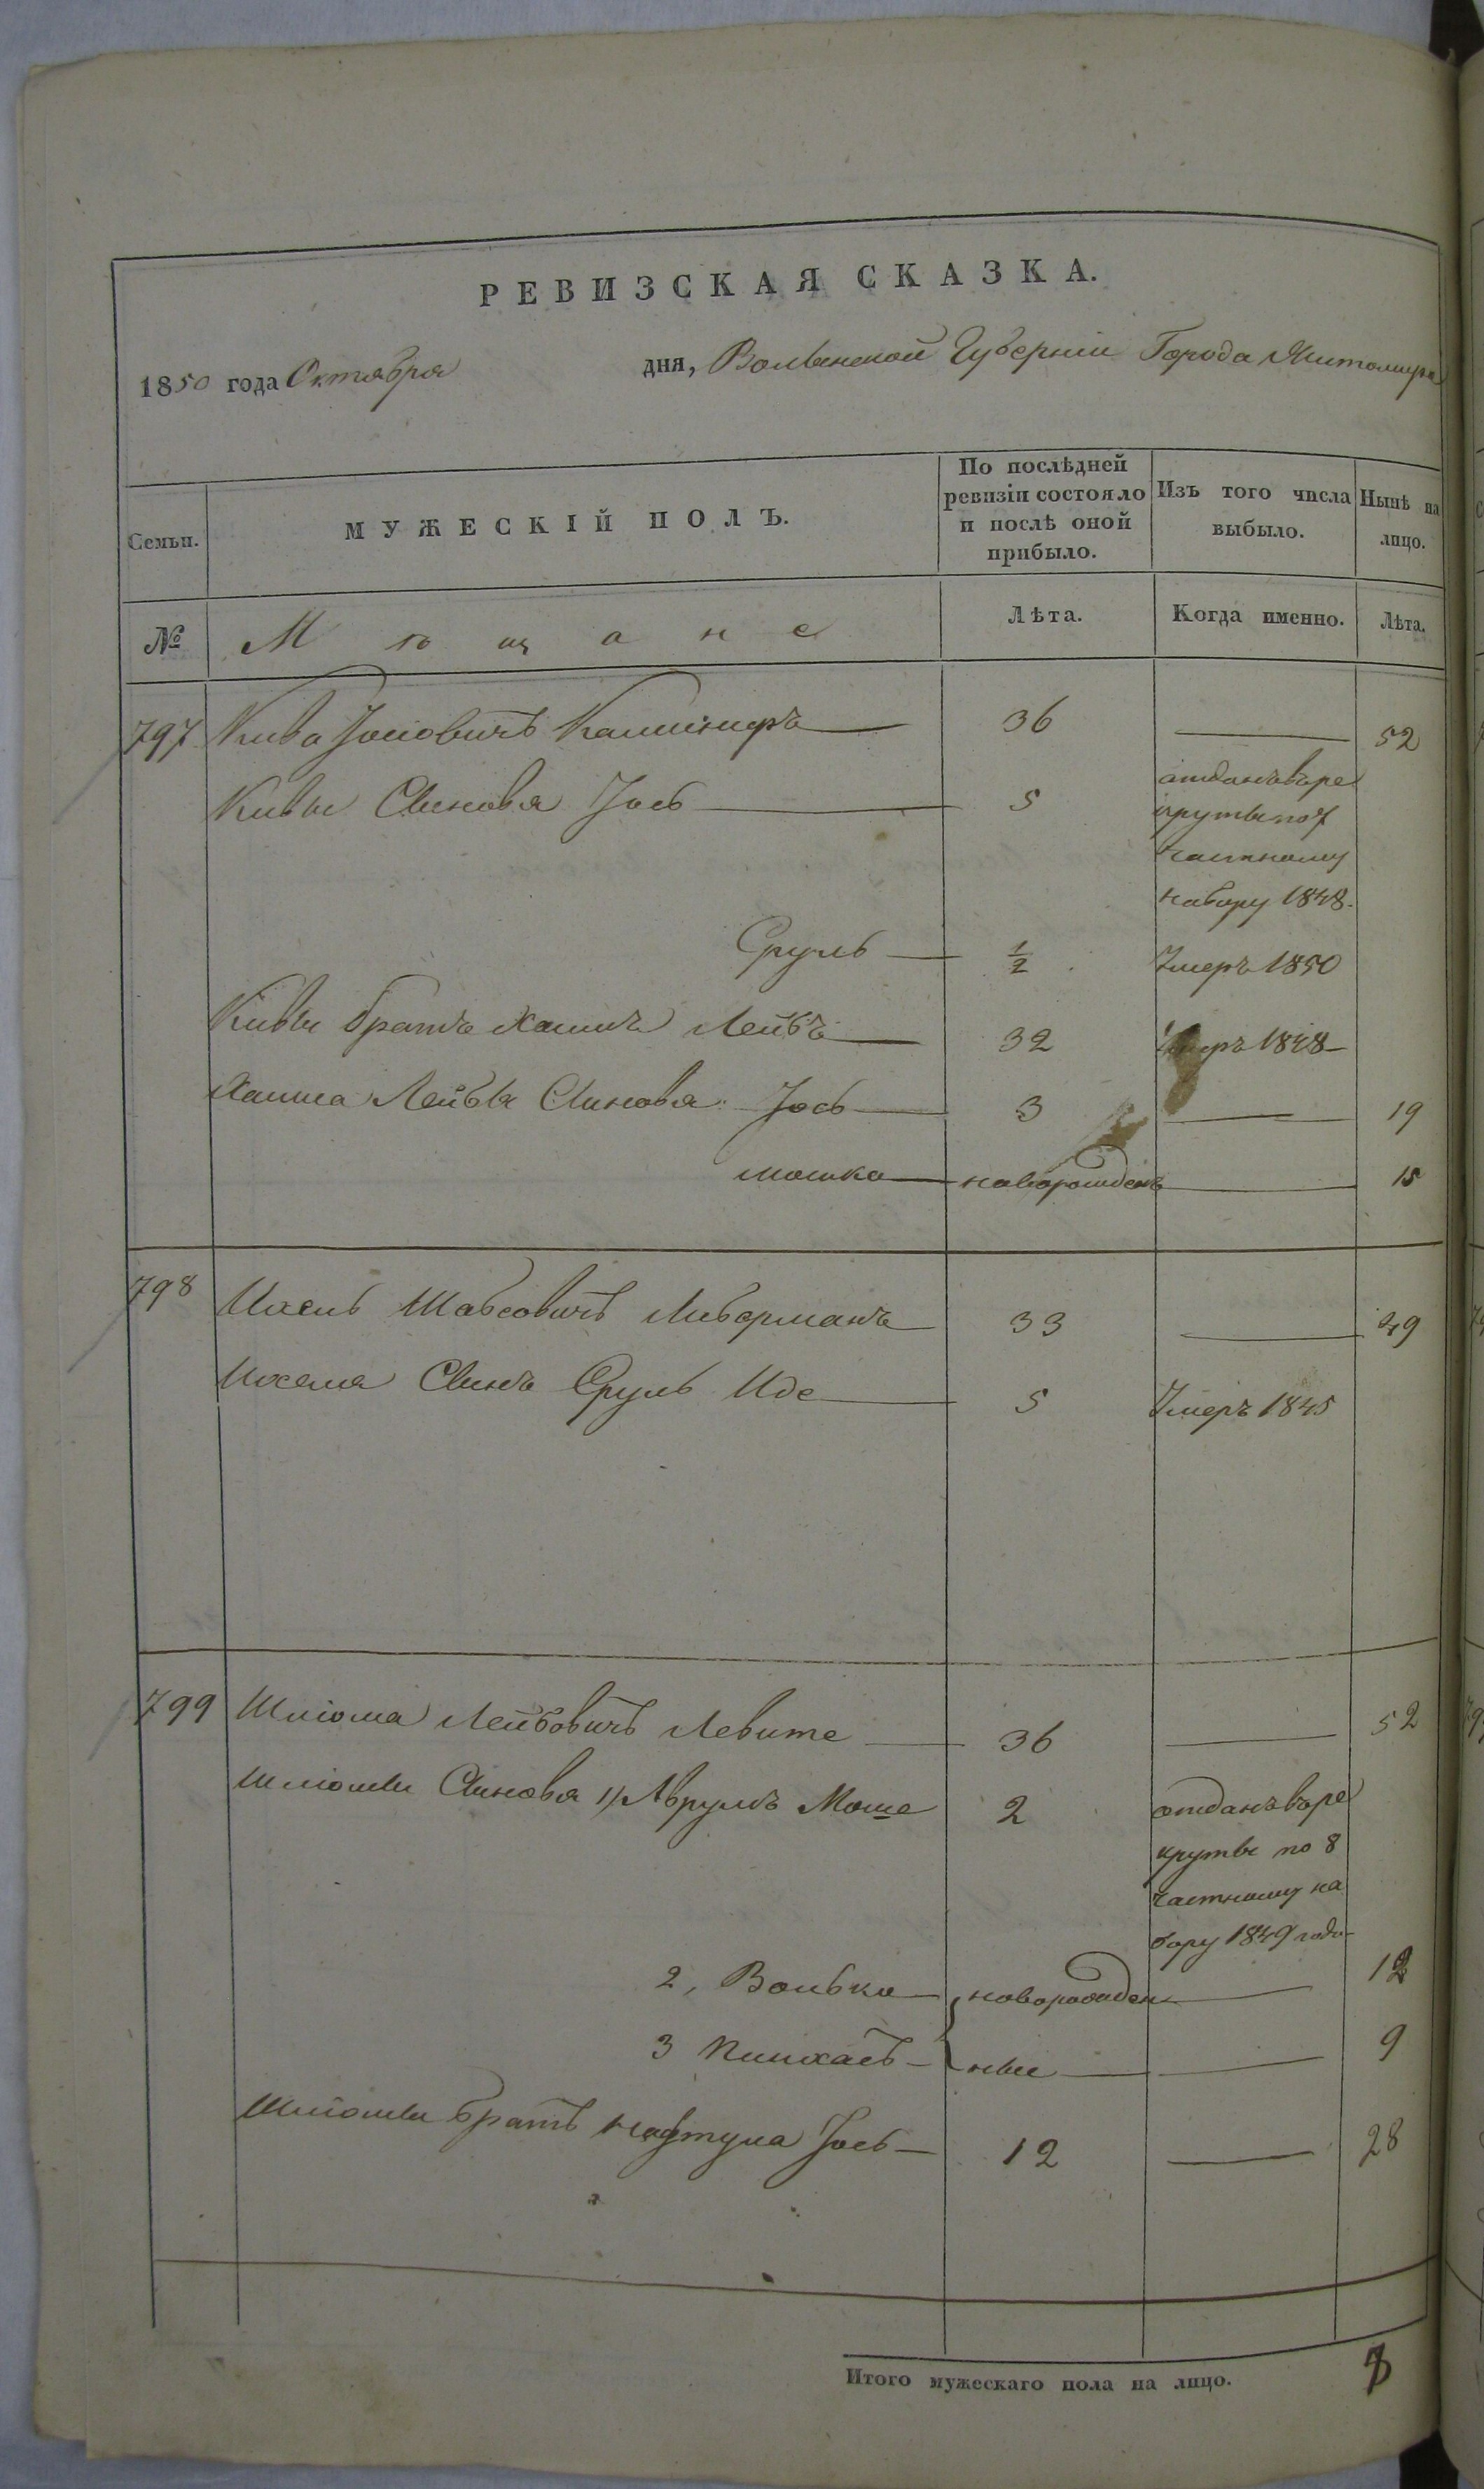 РЕВИЗСКАЯ СКАЗКА.
1850 года Октября дня, Волынской Губерніи Города Житомира
Семьи. МУЖЕСКІЙ ПОЛЪ. По послѣдней ревизіи состояло и послѣ оной прибыло. Изъ того числа выбыло. Нынѣ на лицо.
№ Мѣщане Лѣта. Когда именно. Лѣта.
797 Кива Іосіовичъ Камшнеръ 36 — 52
Кивы Сыновья Іось 5 отданъ въ ре
круты по 7
частному
набору 1848.
Сруль 1/2 Умеръ 1850
Кивы братъ Хаимъ Лейбъ 32 Умеръ 1848
Хаима Лейбы Сыновья Іось 3 — 19
Мошко новорожденъ — 15
798 Ихель Шабсовичъ Либерманъ 33 — 49
Ихеля Сынъ Сруль Иде 5 Умеръ 1845
799 Шліома Лейбовичъ Левите 36 — 52
Шліомы Сыновья 1, Аврумъ Моше 2 отданъ въ ре
круты по 8
частному на
бору 1849 года
2, Волько новорожден — 12
3 Пинхасъ ные — 9
Шліомы братъ Нафтула Іось 12 — 28
Итого мужескаго пола на лицо.